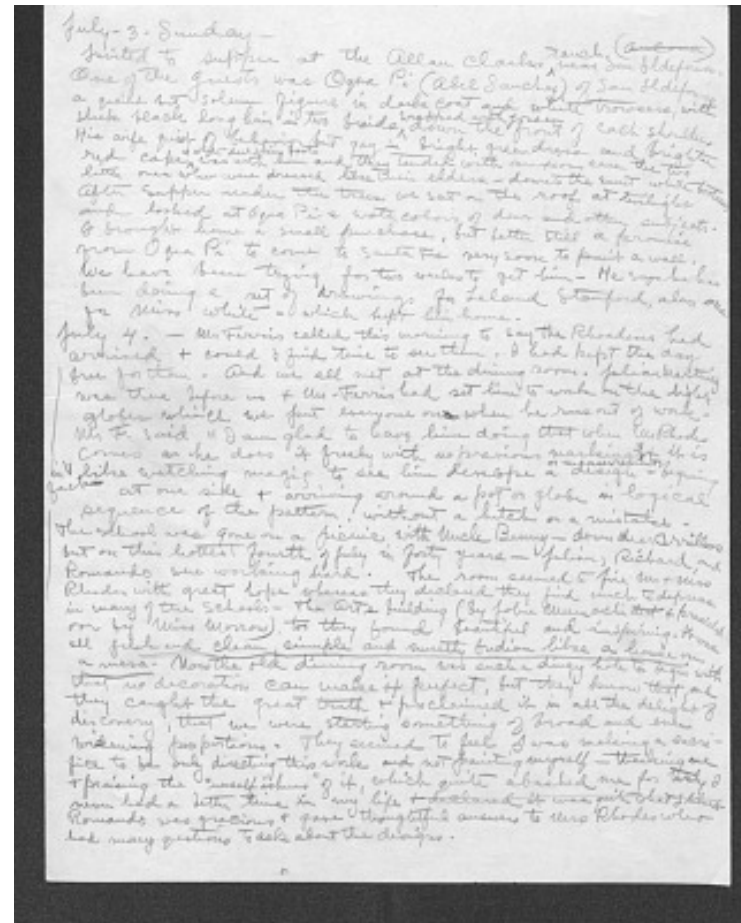 July - 3 - Sunday -
Invited to supper at the Allan Clarks ranch, near San Ildefonso.
One of the guests was Oqwa Pi (Abel Sanchez) of San Ildefonso
a quiet but solemn figure in dark coat and white trousers, with
sleek black long hair in two braids, wrapped down the front of each shoulder
His wife but gay in bright green dress and brighter
red cape, was with him and they tended with care the two
little ones who were dressed like their elders - down to the white
After supper under the trees we sat on the roof at twilight
and looked at Oqwa Pi's water colors of deer and other subjects.
I brought home a small purchase, but better still a promise
from Oqwa Pi to come to Santa Fe very soon to paint a wall.
We have been trying for two weeks to get him - He says he has
been doing a set of drawings for Leland Stanford, also one
for Miss White - which kept him home.
July 4. - Mr Ferris called this morning to say the Rhodes had
arrived & could I find time to see them. I had kept the day
free for them. And we all met at the dining room. Julian
was there before us & Mr Ferris had set him to work on the
globes which we put everyone on when he runs out of work.
Mr F. said, "I am glad to have him doing that when Mrs Rhodes
comes as he does it freely with no previous markings & it is
like watching magic to see him develop a design - beginning
at one side & arriving around a pot or globe in logical
sequence of the pattern, without a hitch or a mistake -
The school was gone on a picnic with Uncle Benny - down near Cerrillos
but on this hottest fourth of July in forty years - Julian, Richard, and
Romando were working hard. The room seemed to fire Mr & Mrs
Rhodes with great hope whereas they declared they find much to depress
in many of the schools - The Arts building (by John
over by Miss Morrow) they found beautiful and inspiring.
all fresh and clean, simple and mostly Indian like a house on
a mesa. Now the old dining room was such a dingy hole to begin with
that no decoration can make it perfect, but they know that and
they caught the great truth & proclaimed it in all the delight of
discovery, that we were starting something of broad and even
widening proportions. They seemed to feel I was making a sacri-
fice to be only directing this work and not painting myself - thanking me
& praising the "unselfishness" of it, which quite abashed me for I
never had a better time in my life &
Romando was gracious & gave thoughtful answers to Mrs Rhodes who
had many questions to ask about the designs.